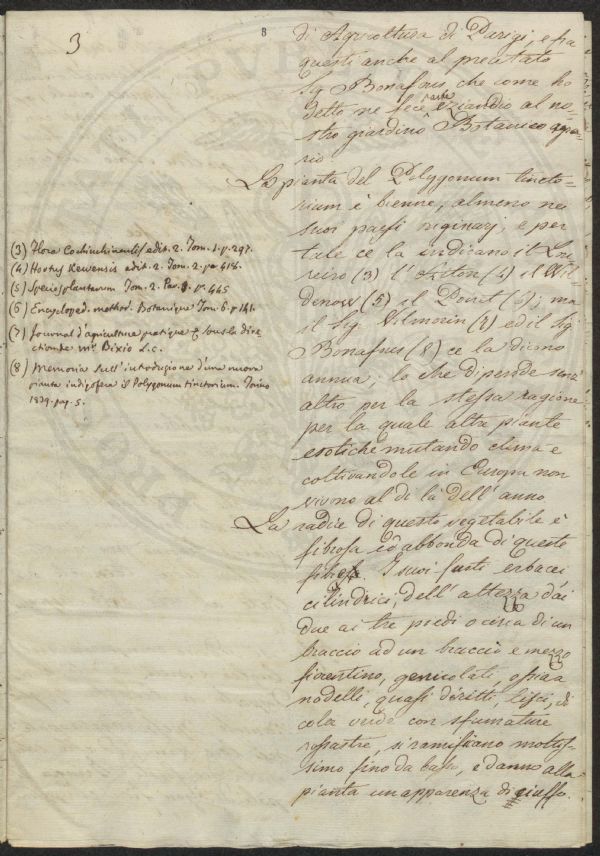 3
8
di Agricoltura di Parigi, e fra
questi anche al precitato
Sig. Bonafous, che come ho
detto ne fece parte eziandio al no=
stro giardino Botanico agra=
rio
La pianta del Polygonum tincto=
rium è bienne, almeno nei
suoi paesi originarj, e per
tale ce la indicano il Lou
reiro (3) l'Aiton (4) il Wil
denow (5) il Poiret (6); ma
il Sig. Vilmorin (7) ed il Sig.
Bonafous (8) ce la dicono
annua, lo che dipende senz'
altro per la stessa ragione
per la quale altre piante
esotiche mutando clima e
coltivandole in Europa non
vivono al di là dell'anno
La radice di questo vegetabile è
fibrosa ed abbonda di queste
fibre. I suoi fusti erbacei
cilindrici, dell'altezza dai
due ai tre piedi o circa di un
braccio ad un braccio e mezzo
fiorentino, genicolati, ossia a
nodelli, quasi diritti, lisci, di
color verde con sfumature
rossastre, si ramificano moltis-
simo fino da basso, e danno alla
pianta un apparenza di ciuffo.
(3) Flora Cochinchinensis edit. 2. Tom. 1. p. 297.
(4) Hortus Kewensis edit. 2. Tom. 2. pa 418.
(5) Species plantarum Tom. 2. Par. 1. p. 445
(6) Encycloped. method. Botanique Tom. 6. p 141.
(7) Journal d'agriculture pratique sous la dire
ction de Mr. Bixio L.c.
(8) Memoria sull'introduzione d'una nuova
pianta indigofera il Polygonum tinctorium. Torino
1839. pag. 5.